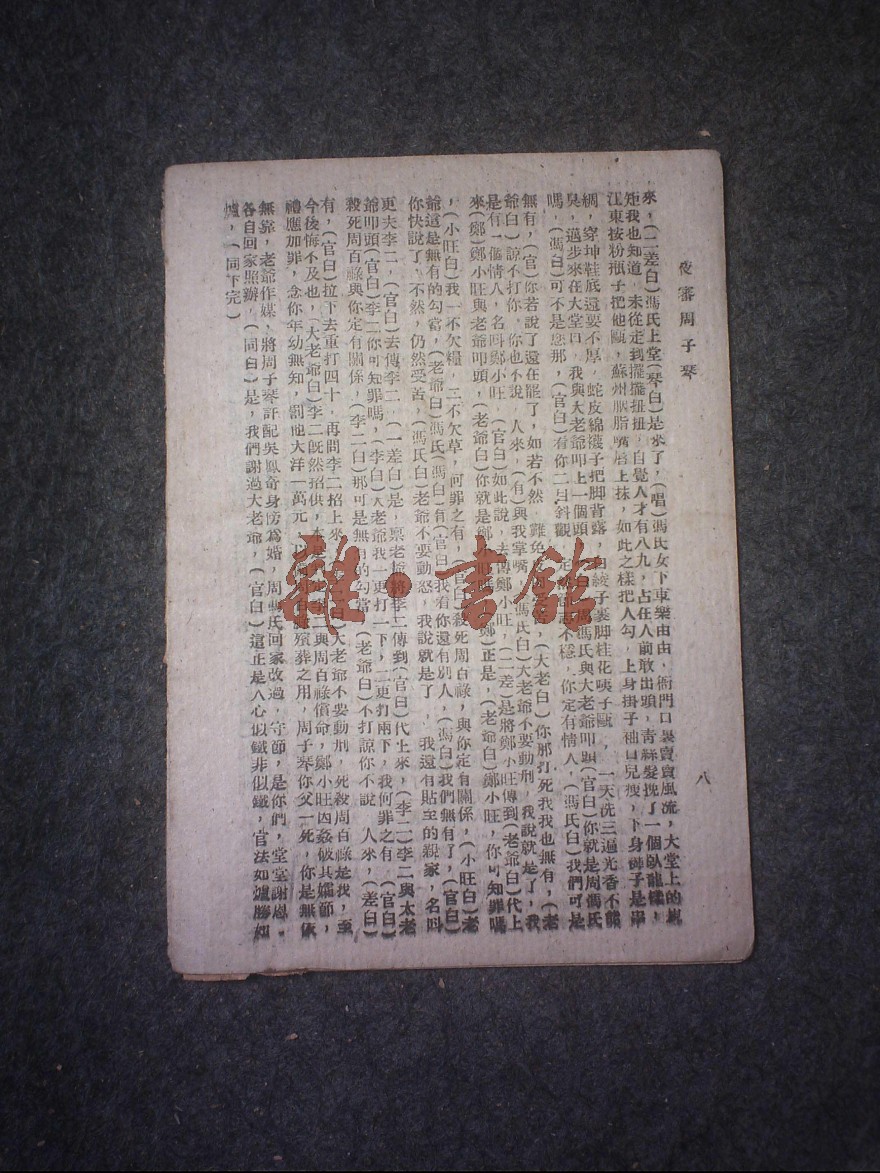 夜審周子琴
八
來，(二差白)馮氏上堂(琴白)是來了，(唱)馮氏女下車樂由由，衙門口裏賣賣風流，大堂上的規
矩我也知道，未從走到擺擺扭扭，自覺人才有八九，占在人前敢出頭，靑絲髮挽了一個臥龍
江東按粉瓶子把他甌，蘇州胭脂嘴唇上抹，如此之樣把人勾，上身掛子袖口兒瘦，下身褲子是
綢，穿坤鞋底還要不厚，蛇皮綿襪子把脚背露，白綾子裹脚桂花咦子甌，一天洗三遍光香不
臭，邁步來在大堂口，我與大老爺叩上一個頭，白周馮氏與大老爺叩頭(官白)你就是周馮氏
嗎，(馮白)可不是您那，(官白)看你二目斜觀，不穩，你定有情人，(馮氏白)我們可是
無有，(官)你若說了還在罷了，如若不然，難免，(大老白)你那打死我我也無有，(老
爺白)諒不打你，你也不說，人來，(有)與我掌嘴，(馮氏白)大老爺不要動刑，我說就是了，我
是有一個情人，名叫鄭小旺，(官白)如此說，去傳鄭小旺，(二差)是將鄭小旺傳到(老爺白)代上
來(鄭)鄭小旺與老爺叩頭，(老爺白)你就是鄭小旺嗎，(鄭)正是，(老爺白)鄭小旺，你可知罪嗎
，(小旺白)我一不欠糧，二不欠草，何罪之有，(官白)殺死周百祿，與你定有關係，(小旺白)老
爺這是無有的勾當，(老爺白)馮氏(馮白)有(官白)我看你還有別人，(馮白)我們無有了，(官白)
你快說了，不然，仍然受苦，(馮氏白)老爺不要動怒，我說就是了，我還有貼至的親家，名叫
更夫李二，(官白)去傳李二，(一差白)是，稟老爺將李二傳到(官白)代上來，(李二)李二與太老
爺叩頭(官白)李二你可知罪嗎，(李白)大老爺我一更打一下，二更打兩下，我何罪之有，(官白)
殺死周百祿與你定有關係，(李二白)那可是無有的勾當，(老爺白)不打諒你不說，人來，(差白)
有，(官白)拉下去重打四十，再問李二招上來，白大老爺不要動刑，死殺周百祿是我，至
今後悔不及也，(大老爺白)李二旣然招供，李二與周百祿償命，鄭小旺因姦破其孀節，
禮應加罪，念你年幼無知，罰他大洋一萬元，以周百祿殯葬之用，周子琴你父一死，你是無依
無靠，老爺作媒，將周子琴許配吳鳳奇身傍爲婚，周馮氏回家改過，守節，是你們，堂堂謝恩，
各自回家照辦，(同白)是，我們謝過大老爺，(官白)這正是人心似鐵非似鐵，官法如爐勝如
爐，(同下完)
雜·書館